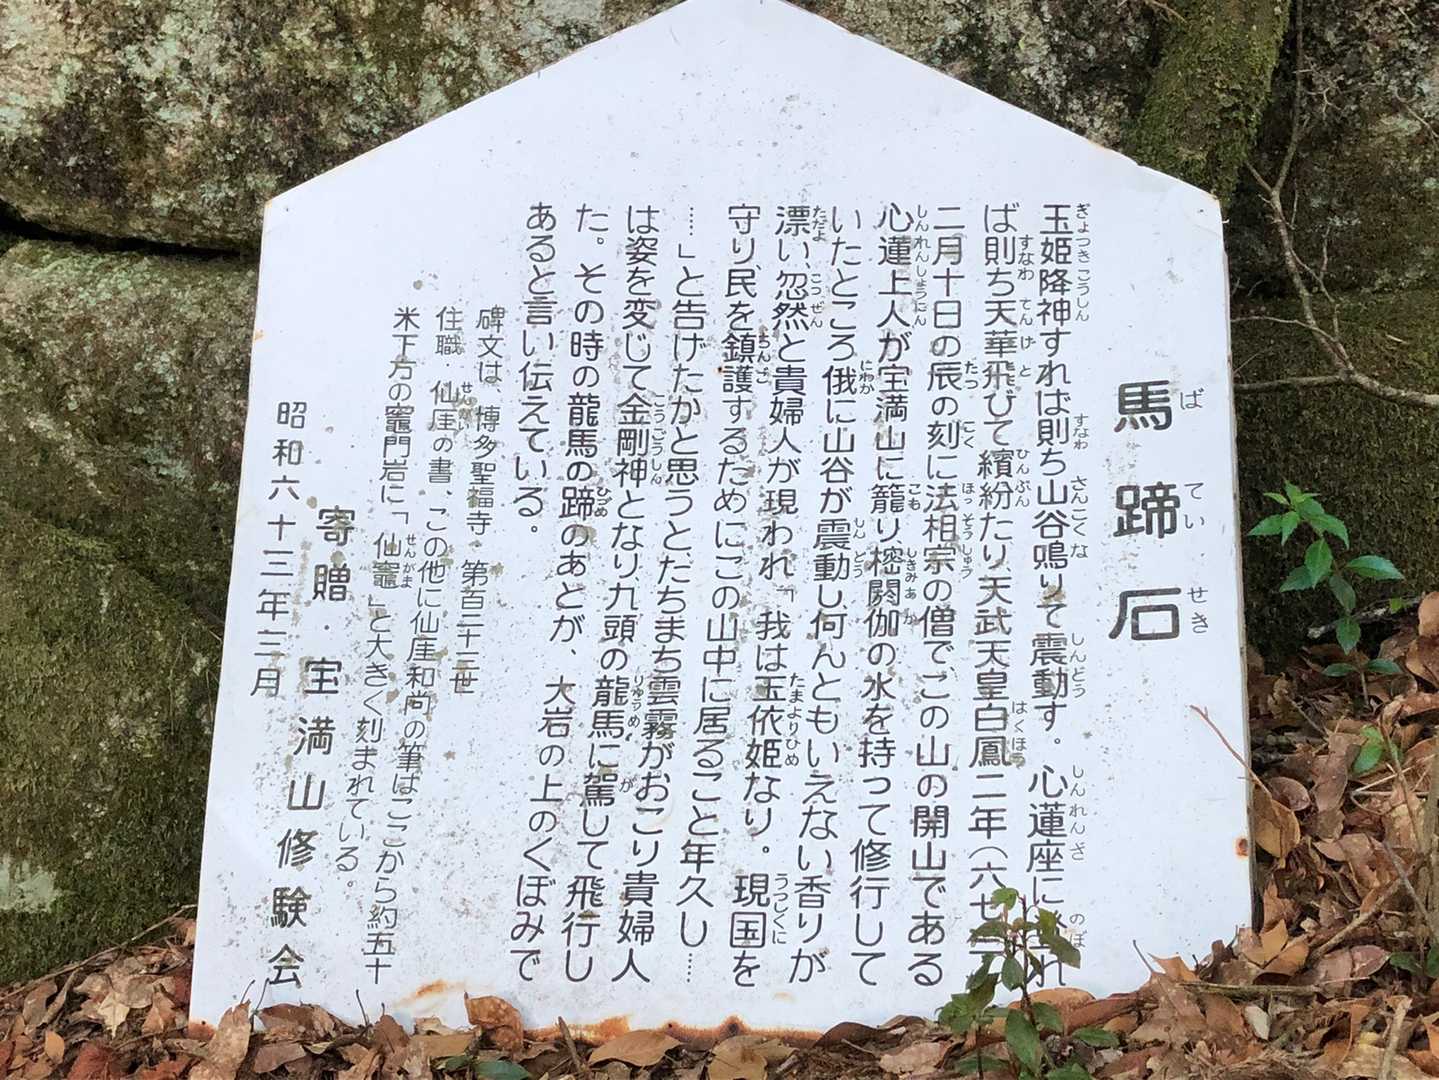 馬蹄石
玉姫降神すれば則ち山谷鳴りて震動す。心蓮座に登れ
ば則ち天華飛びて繽紛たり、天武天皇白鳳二年(六七三)
二月十日の辰の刻に法相宗の僧で、この山の開山である
心蓮上人が宝満山に籠り、樒閼伽の水を持って修行して
いたところ俄に山谷が震動し何んともいえない香りが
漂い、忽然と貴婦人が現われ「我は玉依姫なり。現国を
守り、民を鎮護するためにこの山中に居ること年久し……
……」と告げたかと思うと、たちまち雲霧がおこり貴婦人
は姿を変じて金剛神となり、九頭の龍馬に駕して飛行し
た。その時の龍馬の蹄のあとが、大岩の上のくぼみで
あると言い伝えている。
碑文は、博多聖福寺・第百二十三世
住職・仙厓の書、この他に仙厓和尚の筆はここから約五十
米下方の竈門岩に「仙竈」と大きく刻まれている。
寄贈・宝満山修験会
昭和六十三年三月